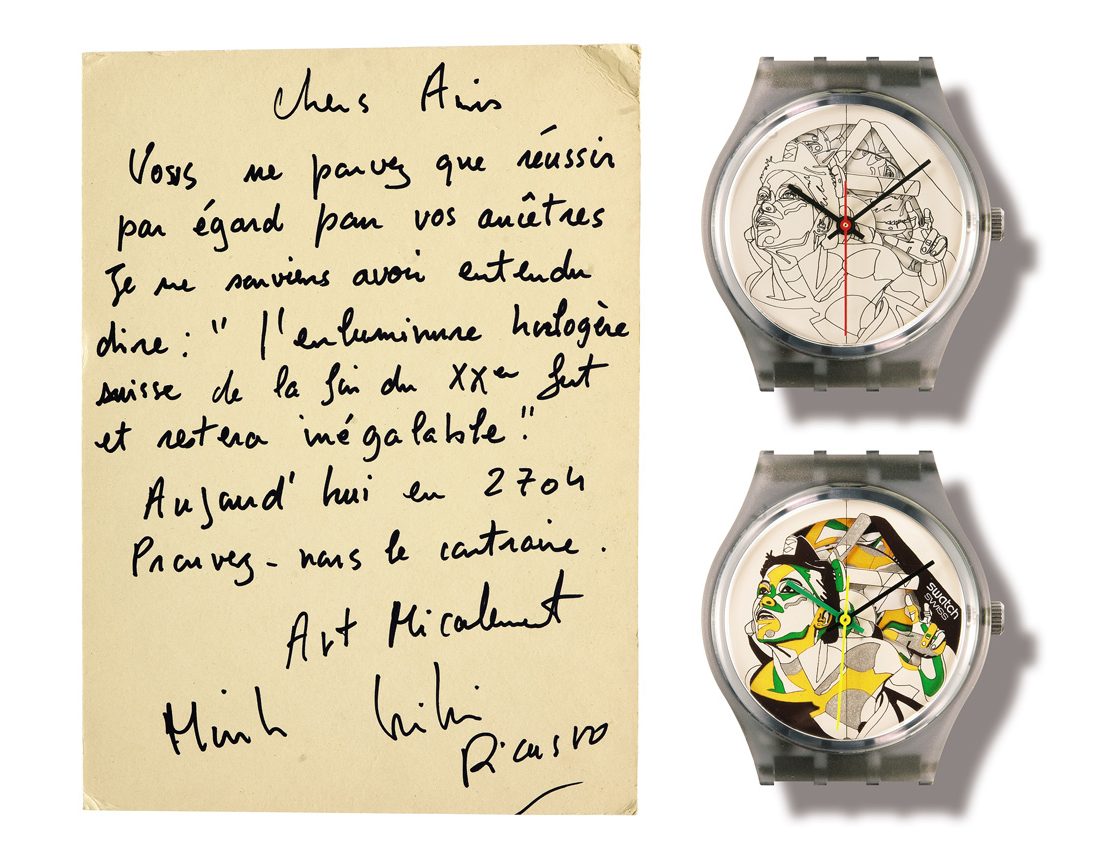 Chers Amis
Vous ne pouvez que réussir
par égard pour vos ancêtres
Je me souviens avoir entendu
dire : " l'enluminure horlogère
suisse de la fin du XXem fut
et restera inégalable".
Aujourd'hui en 2704
Prouvez-nous le contraire.
Art Micalement
Kiki
Picasso
swatch
SWISS